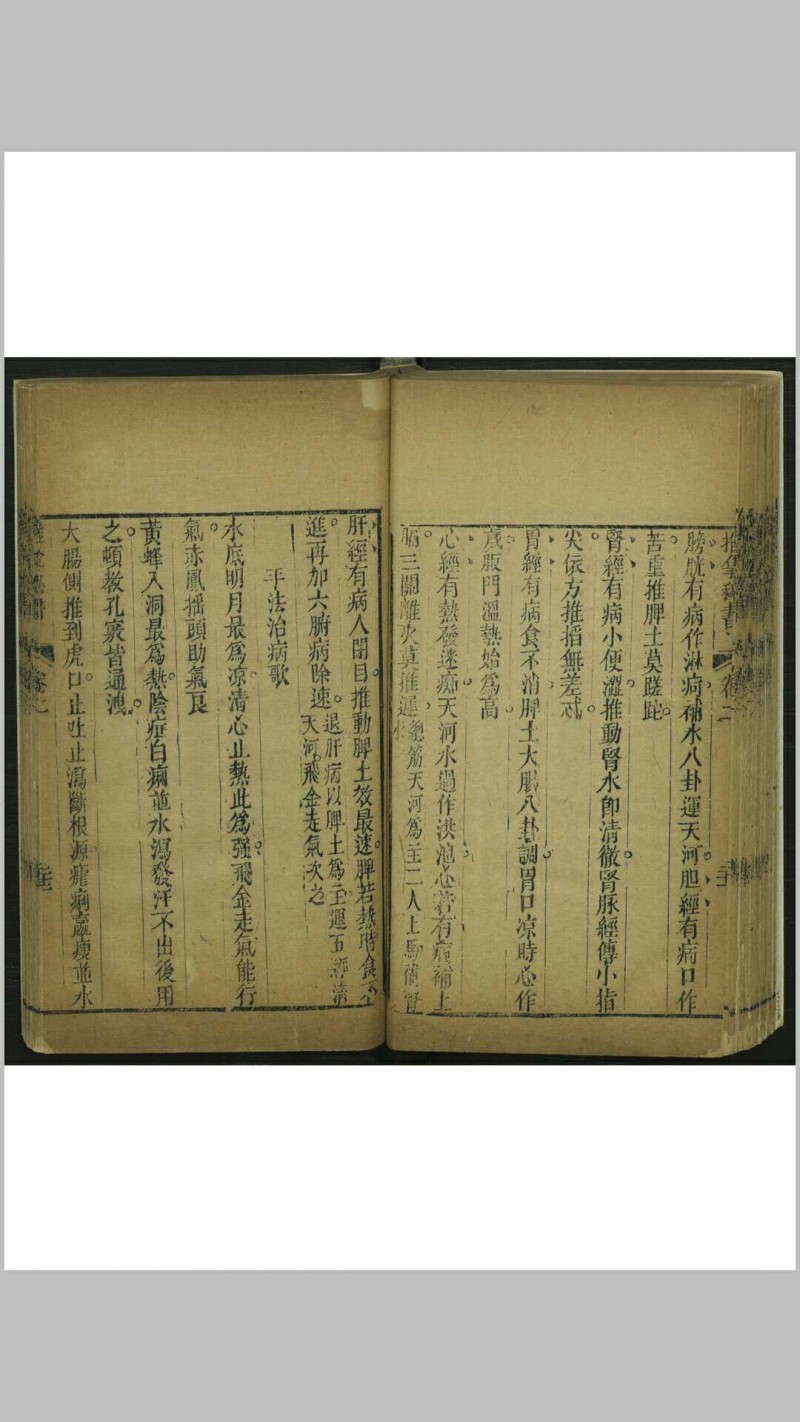 推拿秘書 卷二
膀胱有病作淋疴補水八卦運天河胆經有病口作
苦重推脾土莫蹉跎
腎經有病小便澀推動腎水卽清徹腎脉經傳小指
尖依方推掐無差忒
胃經有病食不消脾土大膓八卦調胃口凉時心作
歳版門溫熱始爲高
心經有熱發迷痴天河水過作洪浪心若有病補上
膈三關離火莫推遲
總筋天河爲主二人上馬補腎
肝經有病人閉目推動脾土效最速脾若熱時食不
進再加六腑病除速
退肝病以脾土爲主運五經清
天河飛金走氣次之
手法治病歌
水底明月最爲凉清心止熱此爲强飛金走氣能行
氣赤鳳摇頭助氣良
黃蜂入洞最爲熱陰症白痢並水瀉發汗不出後用
之頓教孔竅皆通洩
大腸側推到虎口止吐止瀉斷根源瘧痢羸瘦並水